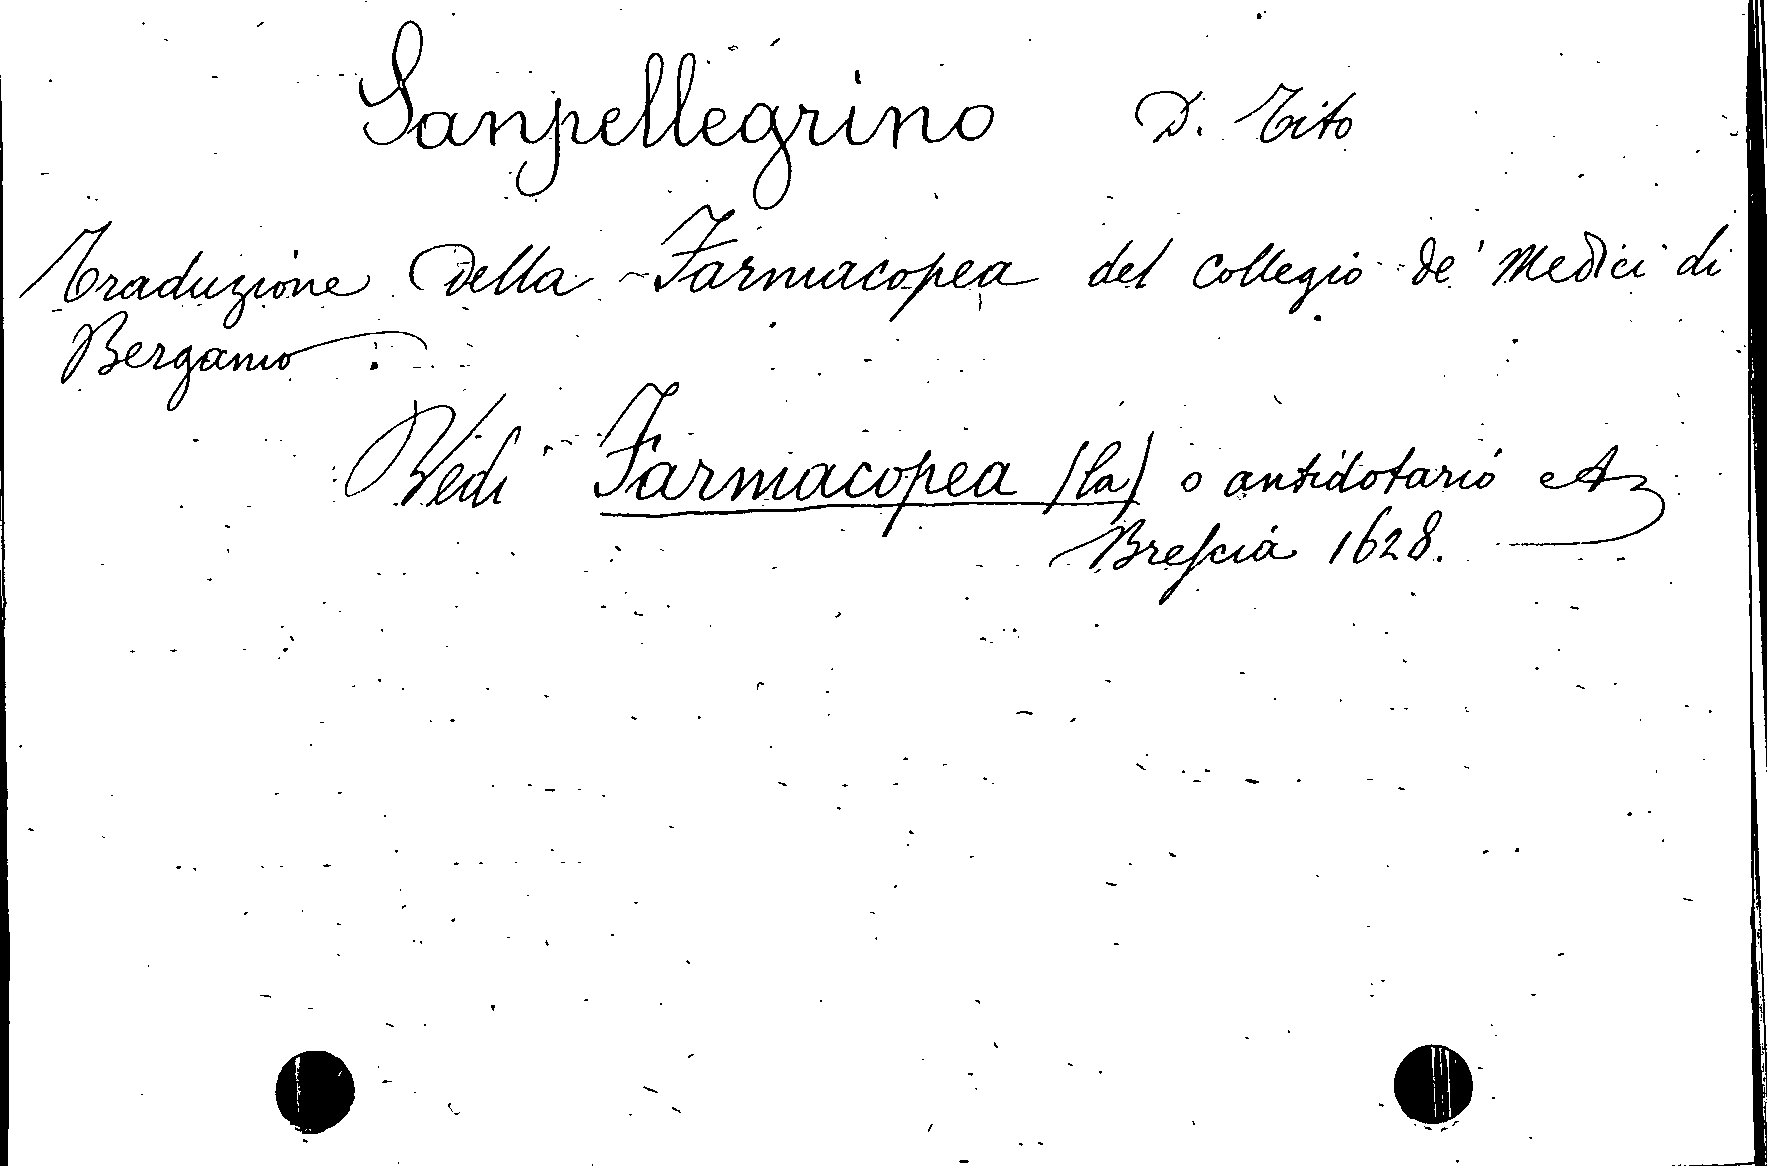 Sanpellegrino D. Tito
Traduzione della Farmacopea del collegio de' Medici di
Bergamo.
Vedi Farmacopea (la) o antidotario
Brescia 1628.